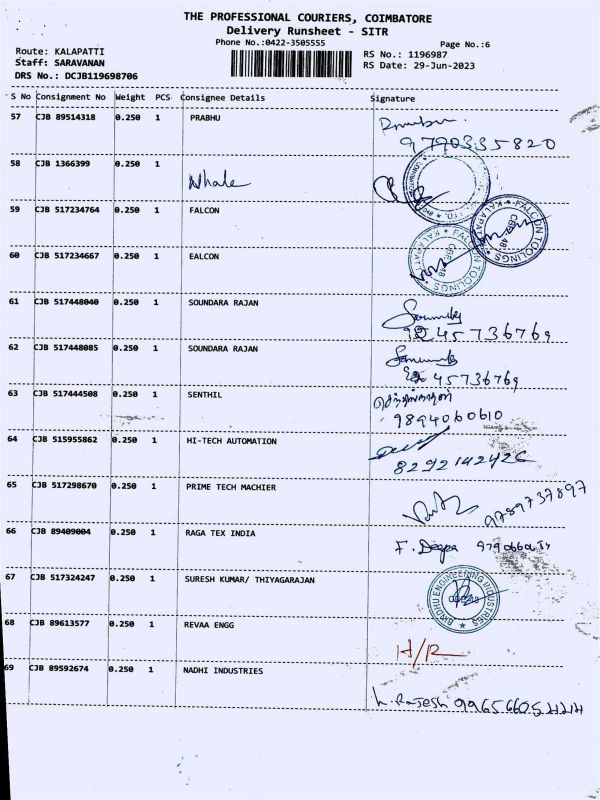 THE PROFESSIONAL COURIERS, COIMBATORE
Delivery Runsheet - SITR
Phone No.:0422-3505555
Page No.:6
Route: KALAPATTI
RS No.: 1196987
Staff: SARAVANAN
RS Date: 29-Jun-2023
DRS No.: DCJB119698706
S No Consignment No Weight PCS Consignee Details Signature
57 CJB 89514318 0.250 1 PRABHU
9790335820
58 CJB 1366399 0.250 1 Whale
59 CJB 517234764 0.250 1 FALCON
FALCON TOOLINGS
60 CJB 517234667 0.250 1 EALCON
FALCON TOOLINGS
61 CJB 517448040 0.250 1 SOUNDARA RAJAN
45736769
62 CJB 517448085 0.250 1 SOUNDARA RAJAN
45736769
63 CJB 517444508 0.250 1 SENTHIL
9894060610
64 CJB 515955862 0.250 1 HI-TECH AUTOMATION
65 CJB 517298670 0.250 1 PRIME TECH MACHIER
9789737897
66 CJB 89409004 0.250 1 RAGA TEX INDIA
F. Deepa
67 CJB 517324247 0.250 1 SURESH KUMAR/ THIYAGARAJAN
ENGINEERING INDUSTRIES
68 CJB 89613577 0.250 1 REVAA ENGG
H/R
69 CJB 89592674 0.250 1 NADHI INDUSTRIES
K. Rajesh